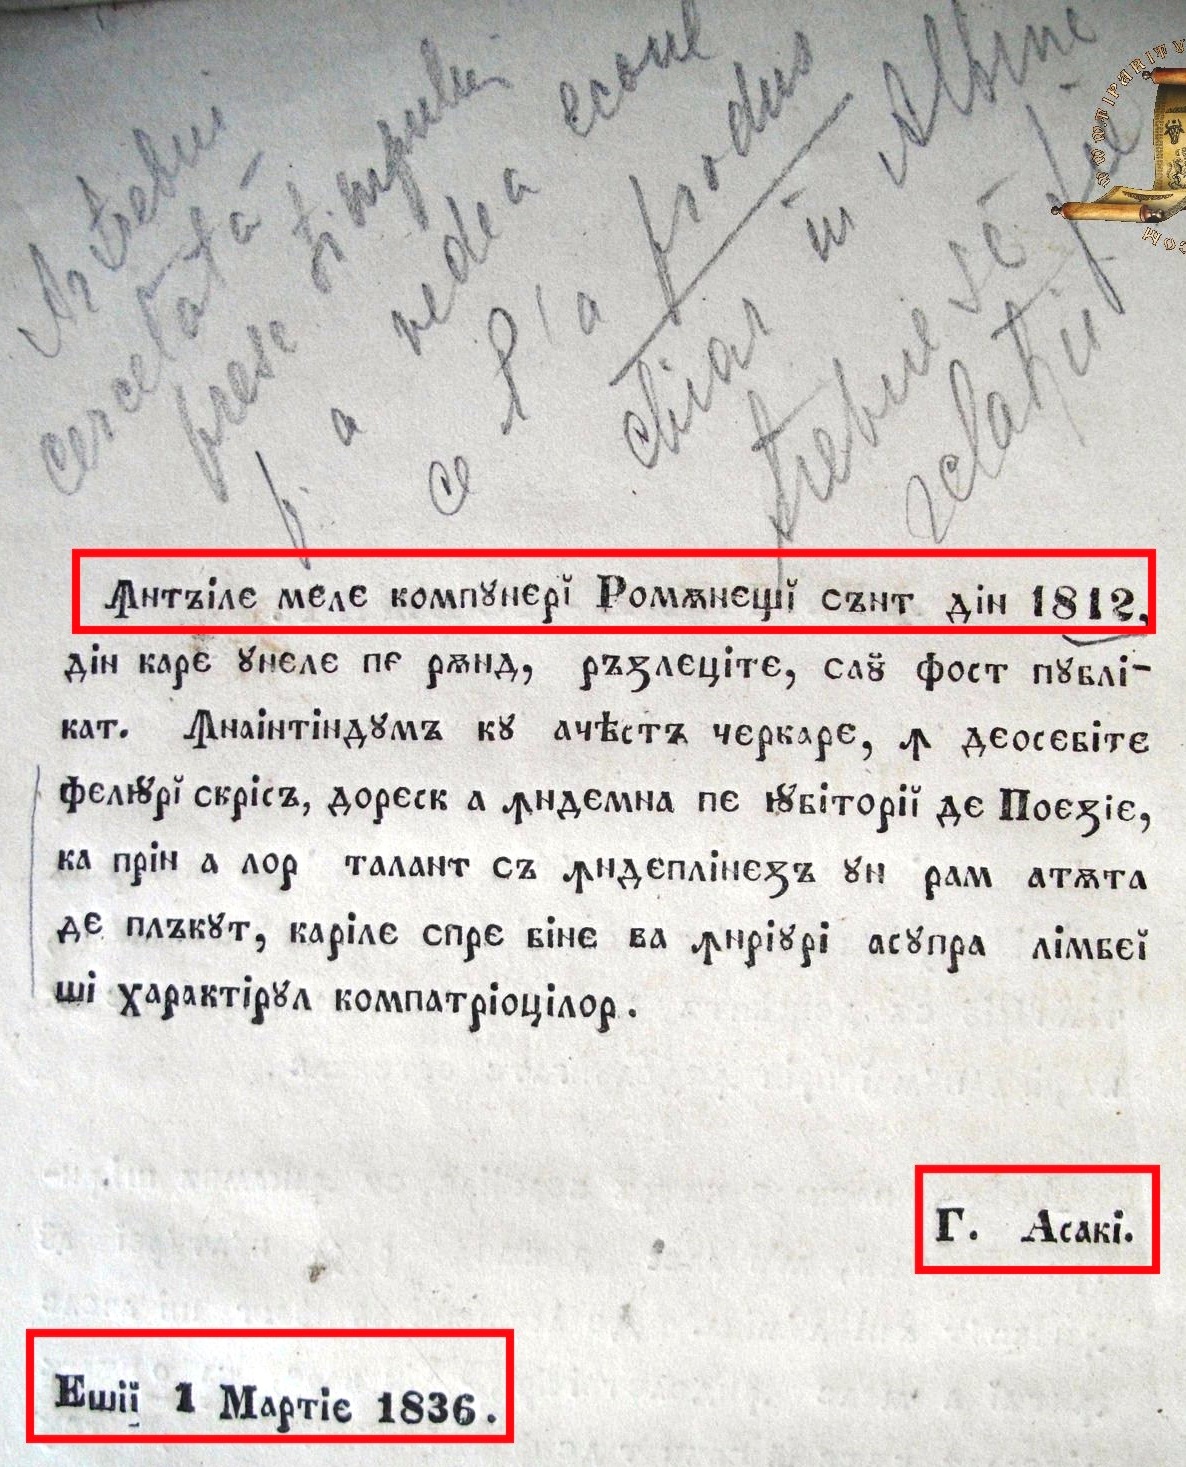 Ar trebui
cercetată
prese timpului
p. a vedea ecoul
ce l'a produs
chiar in Albine
trebue sĕ fie
relațiii
Ꙟнтъіле меле компꙋнерĭ Ромѫнещĭ сънт дін 1812,
дін каре ꙋнеле пе рѫнд, ръзлеціте, саꙋ̆ фост пꙋблі-
кат. Ꙟнаінтіндꙋмъ кꙋ ачѣстъ черкаре, ꙟ деосебіте
фелюрĭ скрісъ, дореск а ꙟндемна пе юбіторіĭ де Поезіе,
ка прін а лор талант съ ꙟндеплінезъ ꙋн рам атѫта
де плъкꙋт, каріле спре біне ва ꙟнріꙋрі асꙋпра лімбеĭ
ші характірꙋл компатріоцілор.
Г. Асакі.
Ешіĭ 1 Мартіе 1836.